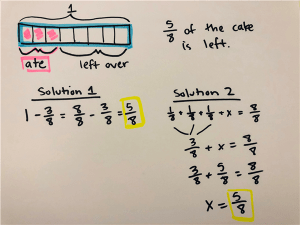 1
ate
left over
5/8 of the cake
is left.
Solution 1
1 - 3/8 = 8/8 - 3/8 = 5/8
Solution 2
1/8 + 1/8 + 1/8 + x = 8/8
3/8 + x = 8/8
3/8 + 5/8 = 8/8
x = 5/8